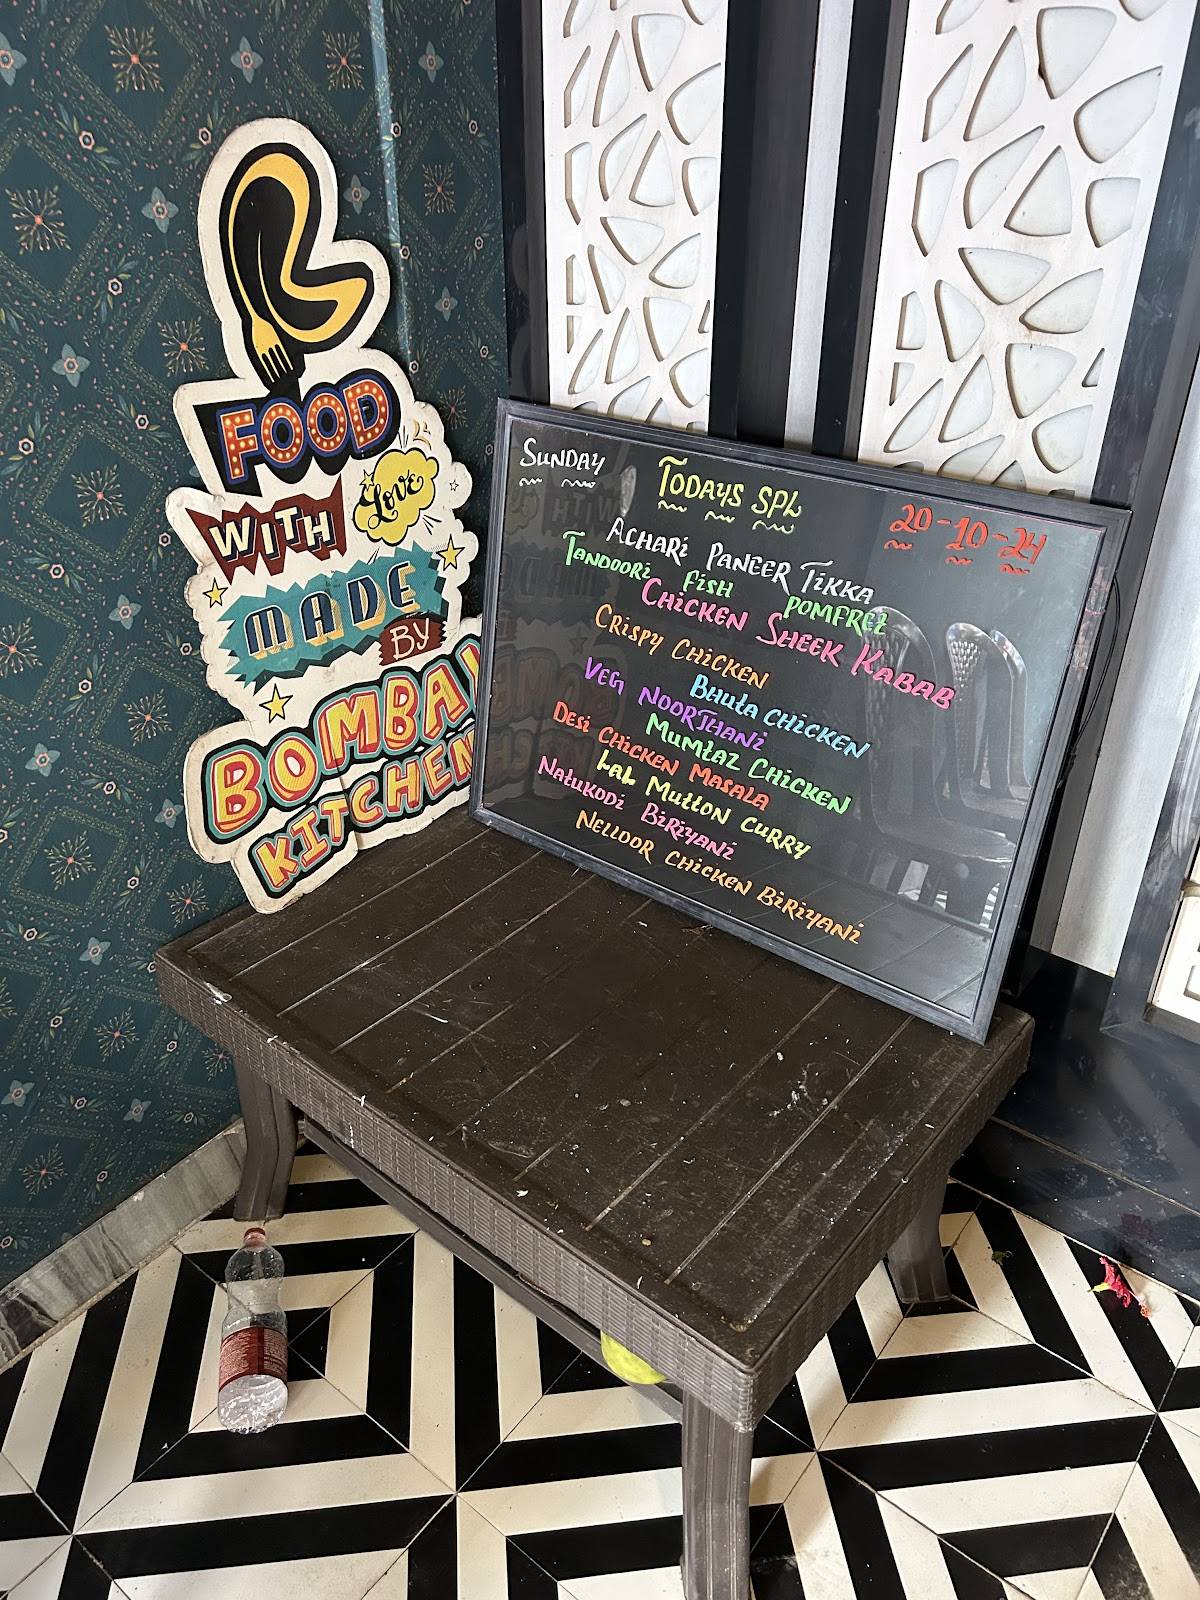 FOOD
WITH Love
MADE
BY
BOMBAY
KITCHEN
SUNDAY
TODAYS SPL
20-10-24
ACHARi PANEER TiKKA
TANDOORi FiSH POMFREt
CHiCKEN SHEEK KABAB
CRiSPY CHiCKEN
BHUtA CHiCKEN
VEG NOORJHANi
MUMtAZ CHiCKEN
DESi CHiCKEN MASALA
LAL MUttON CURRY
NAtUKODi BiRiYANi
NELLOOR CHiCKEN BiRiYANi